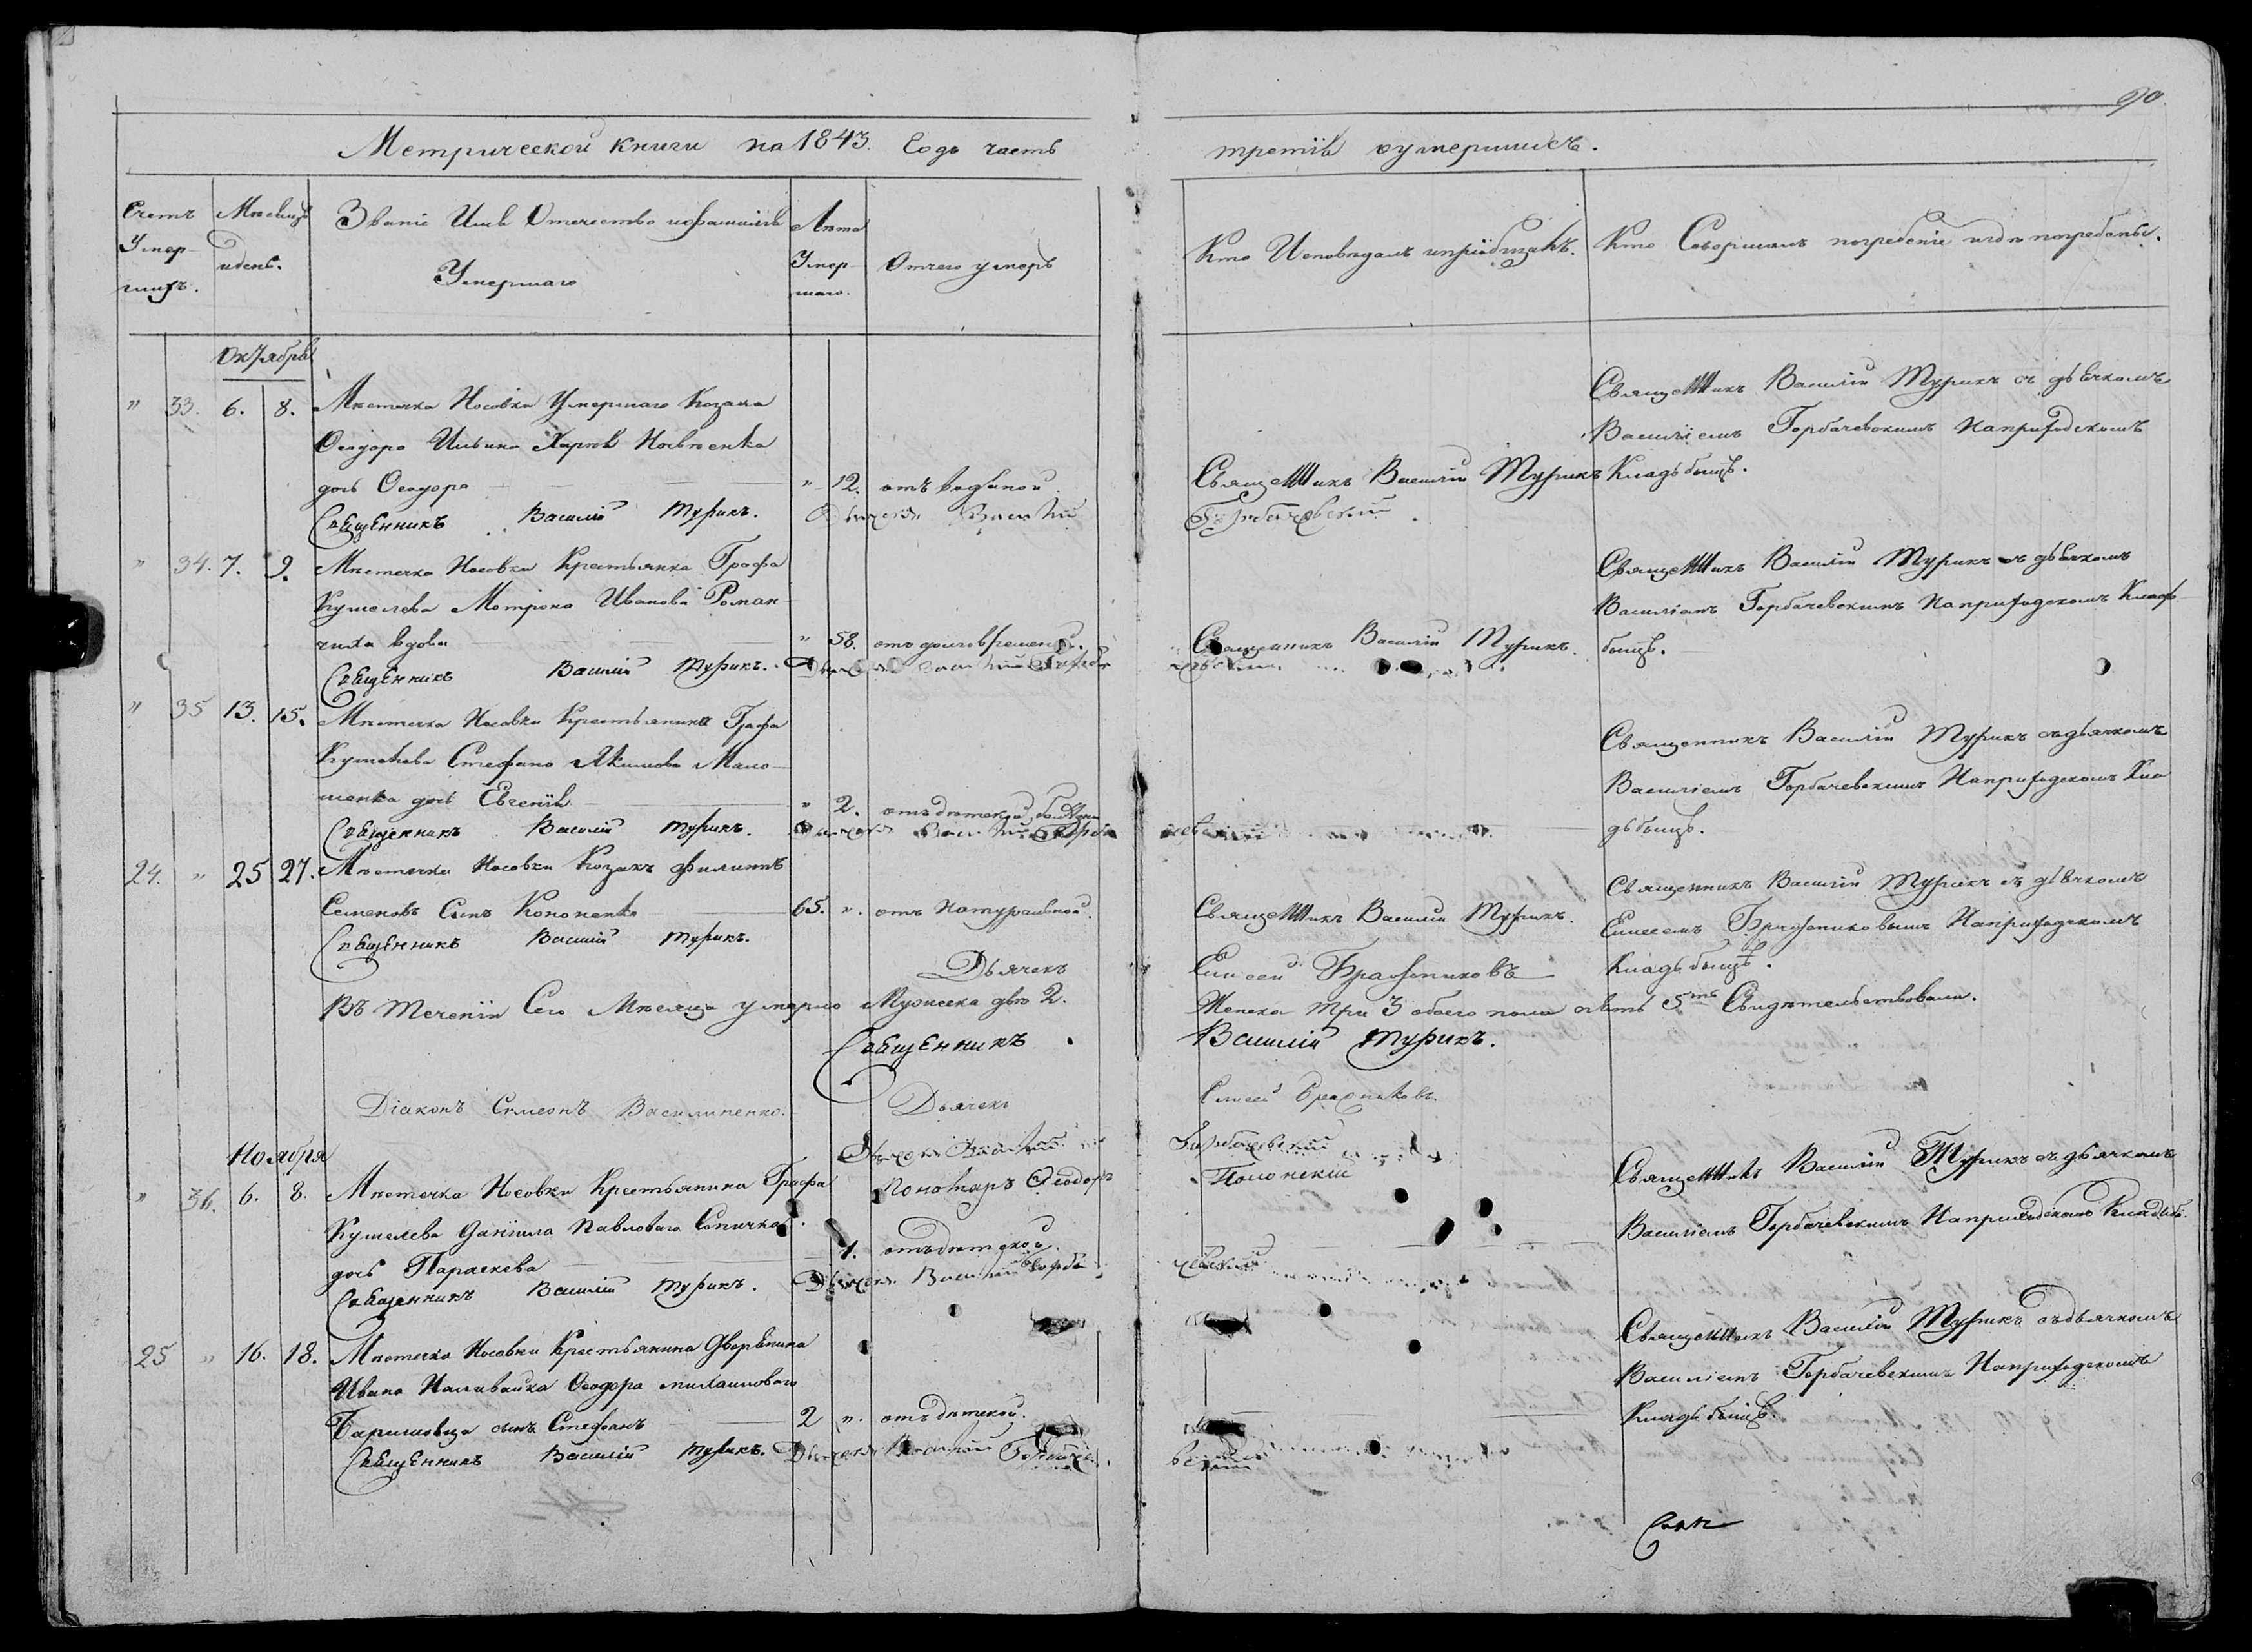 90
Метрической книги на 1843. Годъ часть третія оумершихъ.
Счетъ Умер-шихъ.
Мѣсяцъ идень.
Званіе Имя Отечество ифамилія Умершаго
Лѣта Умер-шаго.
Отчего умеръ
Кто Исповѣдалъ ипріобщалъ.
Кто Совершалъ погребеніе игдѣ погребены.
Октября
" 33. 6. 8. Мѣстечка Носовки Умершаго Козака
Ѳеодора Ильина
дочь Ѳеодора " 12. отъ водяной
Священникъ Василій Турикъ. Дьячекъ Василій Горбачевскій
Священникъ Василій Турикъ
Священникъ Василій Турикъ съ дьячкомъ
Василіемъ Горбачевскимъ Наприходскомъ
Кладьбищѣ.
" 34. 7. 9. Мѣстечка Носовки Крестьянка Графа
Кушелева Мотрона Иванова Роман-
чиха вдова " 58. отъ долговремен.
Священникъ Василій Турикъ. Дьячекъ Василій
Священникъ Василій Турикъ.
Священникъ Василій Турикъ съ дьячкомъ
Василіемъ Горбачевскимъ Наприходскомъ Клад-
бищѣ.
" 35 13. 15. Мѣстечка Носовки Крестьянина Графа
Кушелева Стефана Якимова Мало-
шенка дочь Евгенія " 2. отъ дѣтской
Священникъ Василій Турикъ. Дьячекъ Василій
Священникъ Василій Турикъ съ дьячкомъ
Василіемъ Горбачевскимъ Наприходскомъ Кла
дьбищѣ.
24. " 25 27. Мѣстечка Носовки Козакъ Филиппъ
Семеновъ Сынъ Кононенко 65. ". отъ Натуральной.
Священникъ Василій Турикъ.
Священникъ Василій Турикъ.
Священникъ Василій Турикъ съ дьячкомъ
Елисеемъ Бражниковымъ Наприходскомъ
Кладьбищѣ.
Дьячекъ Елисей Бражниковъ
Въ Теченіи Сего Мѣсяца умерло Мужеска два 2. Женска Три 3 обоего пола пять 5ть Свидѣтельствовали.
Священникъ Василій Турикъ.
Діаконъ Симеонъ Василиненко. Дьячекъ Елисей Бражниковъ.
Дьячекъ Василій Горбачевскій
Пономарь Ѳеодоръ Полонскій
Ноября
" 36. 6. 8. Мѣстечка Носовки Крестьянина Графа
Кушелева Даніила Павлова
дочь Параскева 1. отъ дѣтской.
Священникъ Василій Турикъ. Дьячекъ Василій Горба чевскій
Священникъ Василій Турикъ съ дьячкомъ
Василіемъ Горбачевскимъ Наприходскомъ Кладьб.
25 " 16. 18. Мѣстечка Носовки Крестьянина Дворянина
Ивана Наливайка Ѳеодора Михайлова
сынъ Стефанъ 2 ". отъ дѣтской.
Священникъ Василій Турикъ. Дьячекъ Василій Горбаче вскій
Священникъ Василій Турикъ съ дьячкомъ
Василіемъ Горбачевскимъ Наприходскомъ
Кладьбищѣ.